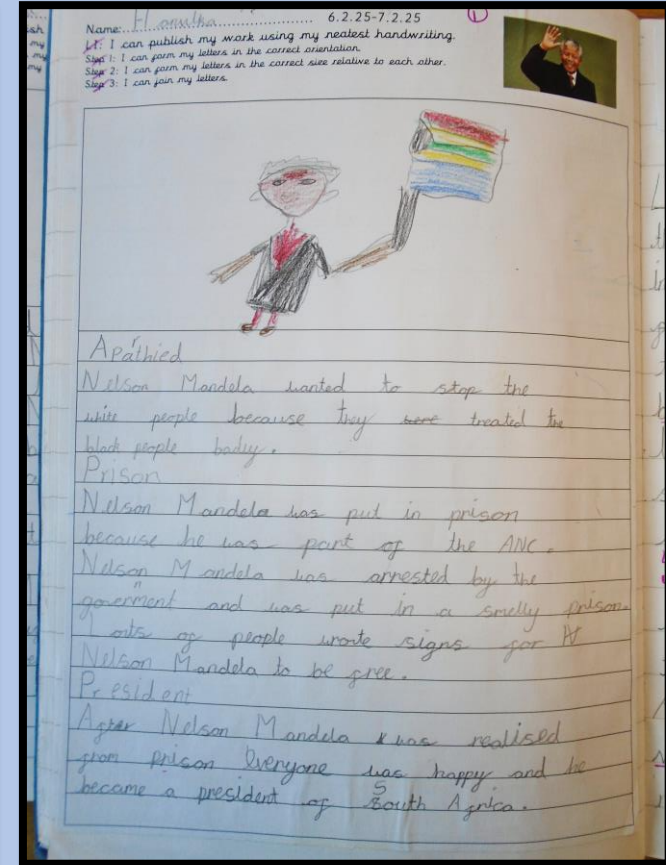 Name: Hanulka 6.2.25-7.2.25 1
LI: I can publish my work using my neatest handwriting.
Step 1: I can form my letters in the correct orientation.
Step 2: I can form my letters in the correct size relative to each other.
Step 3: I can join my letters.
Aparthied
Nelson Mandela wanted to stop the
white people because they were treated the
black people badly.
Prison
Nelson Mandela was put in prison
because he was part of the ANC.
Nelson Mandela was arrested by the
government and was put in a smelly prison.
Loats of people wrote signs for
Nelson Mandela to be free.
President
After Nelson Mandela was realised
from prison Everyone was happy and he
became a president of South Africa.